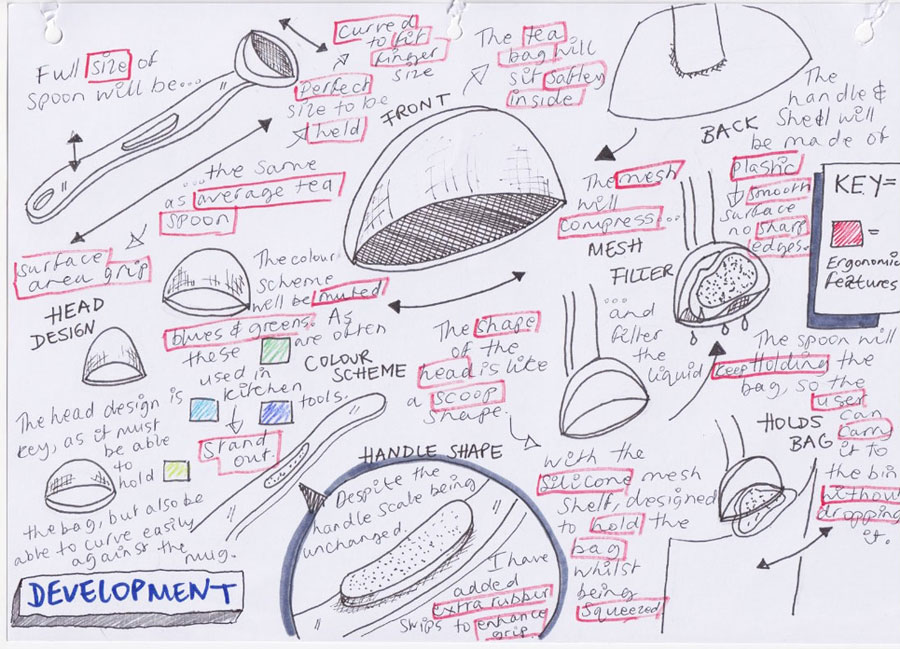 Full size of
spoon will be...
...the same
as average tea
spoon
Curved
to fit
finger
size
Perfect
size to be
held
FRONT
The tea
bag will
sit saftley
inside.
BACK
The
handle &
Shell will
be made of
plastic
smooth
surface
no sharp
edges.
KEY=
=
Ergonomic
features
surface
area grip
HEAD
DESIGN
The head design is
key, as it must
be able
to
hold
the bag, but also be
able to curve easily
against the mug.
The colour
scheme
will be muted
blues & greens. As
these are often
used in
kitchen
tools.
stand
out.
COLOUR
SCHEME
The mesh
will
compress...
MESH
FILTER
...
and
filter
the
liquid
The shape
of the
head is like
a scoop
shape.
with the
silicone mesh
shelf, designed
to hold the
bag
whilst
being
squeezed
The spoon will
keep Holding the
bag, so the
user
can
carry
it to
the bin
without
dropping
it.
HOLDS
BAG
HANDLE SHAPE
Despite the
handle scale being
unchanged.
I have
added
extra rubber
Strips to enhance
grip.
DEVELOPMENT